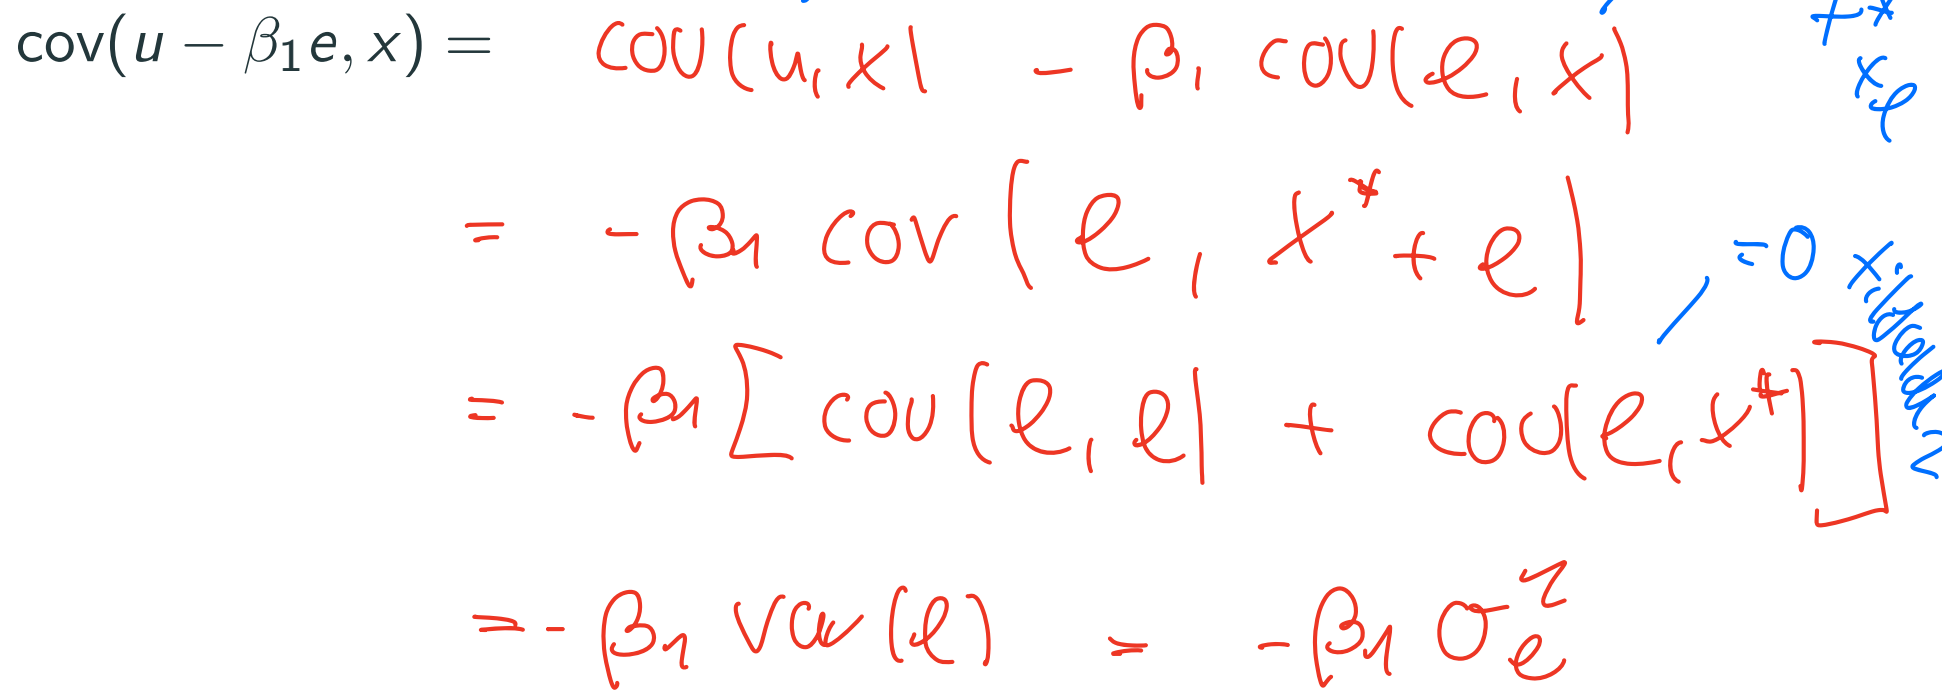 cov(u − β₁e, x) = cov(u, x) - β₁ cov(e, x)
x*
x e
= -β₁ cov(e, x* + e)
=0
= -β₁[cov(e, e) + cov(e, x*)]
= -β₁ var(e) = -β₁ σ²ₑ